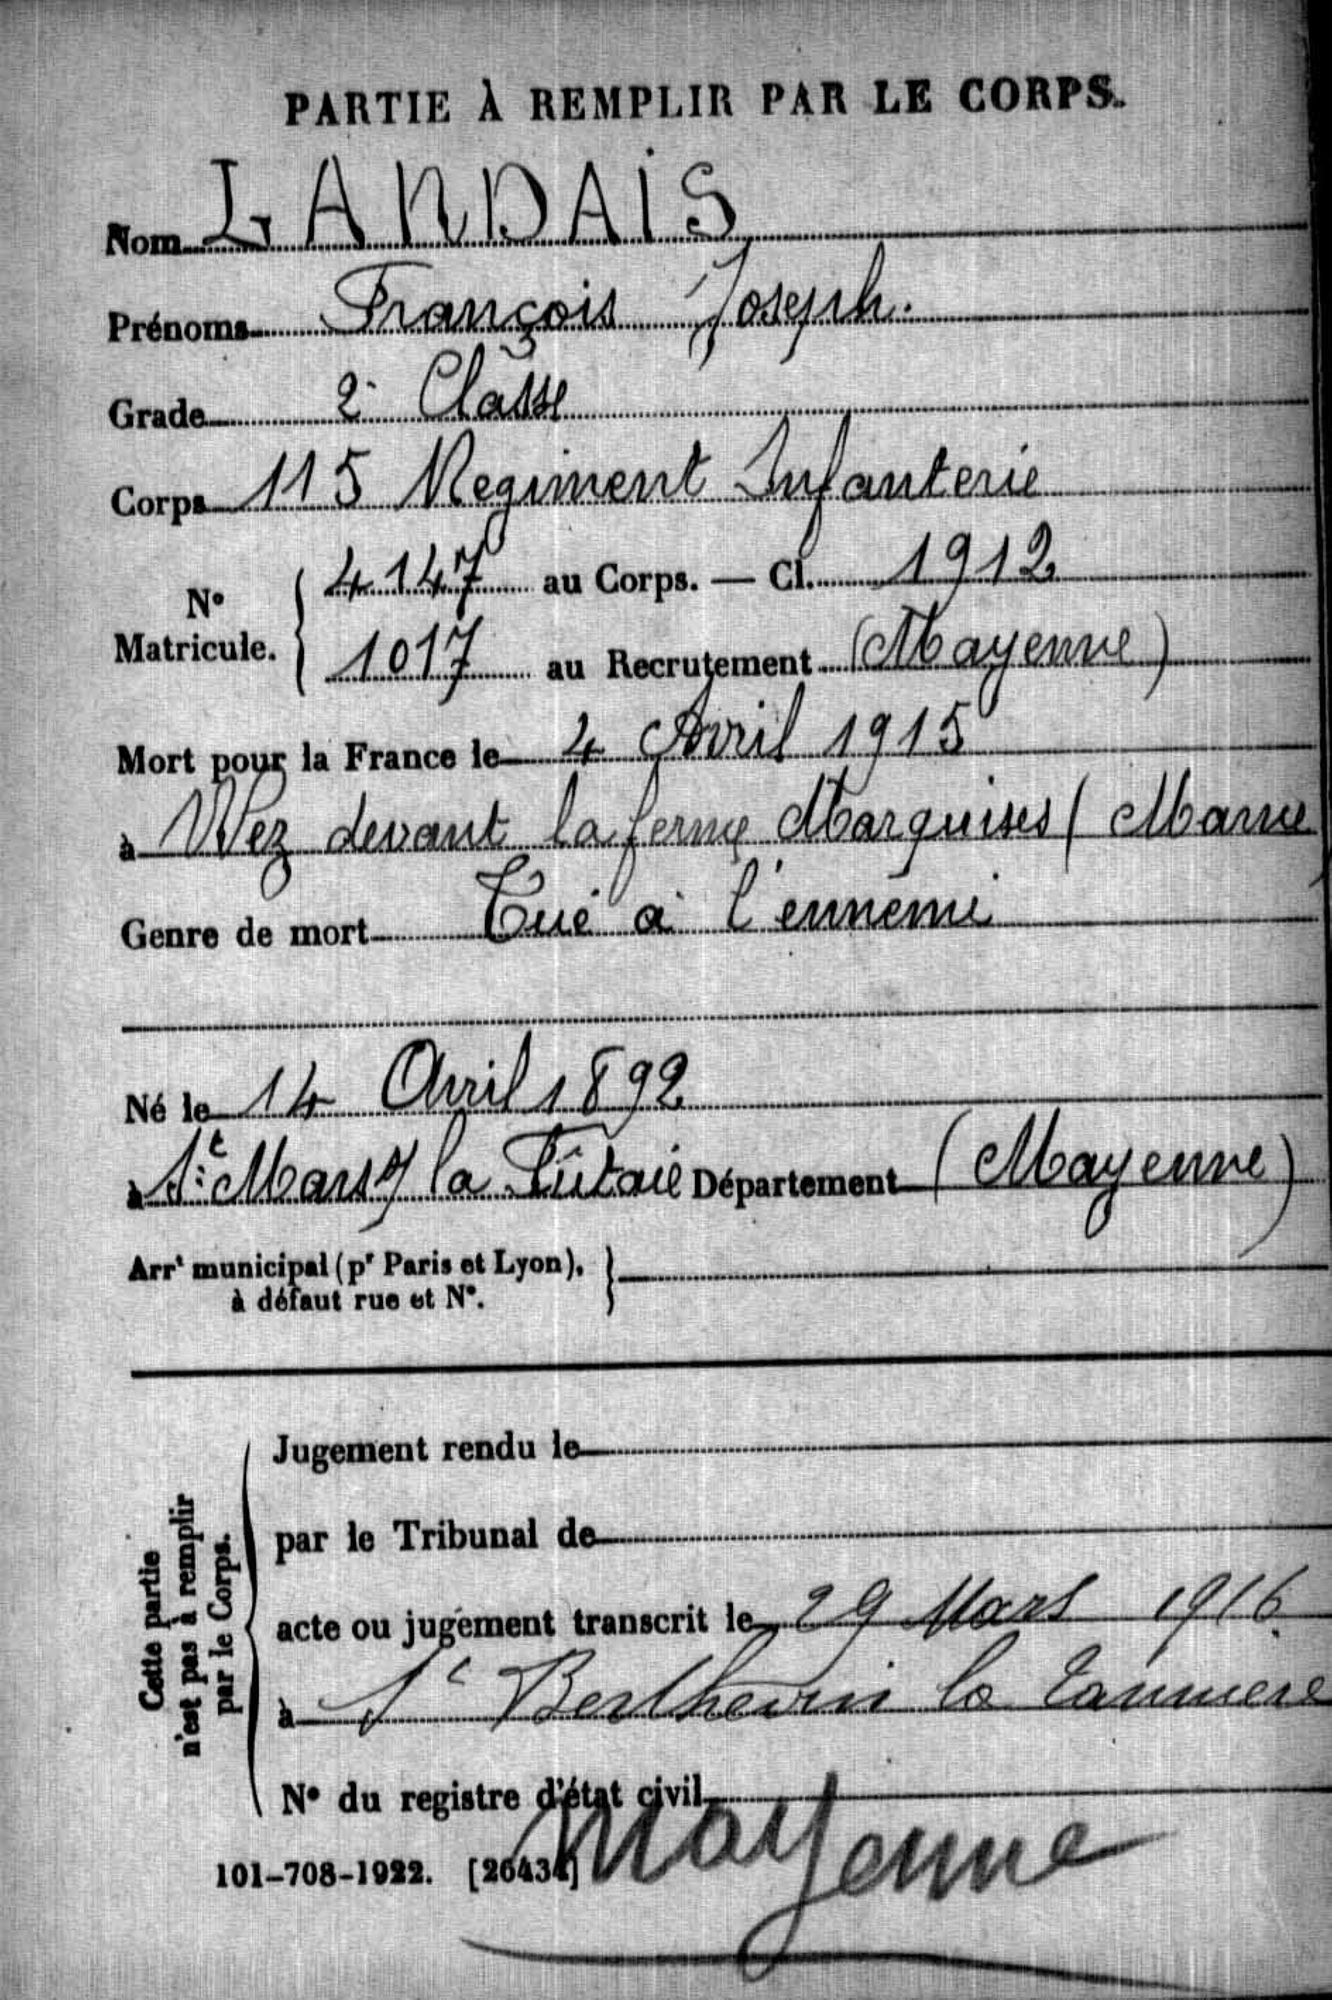 PARTIE À REMPLIR PAR LE CORPS.
Nom LANDAIS
Prénoms François Joseph.
Grade 2e Classe
Corps 115 Regiment Infanterie
N° Matricule. { 4147 au Corps. — Cl. 1912
1017 au Recrutement (Mayenne)
Mort pour la France le 4 Avril 1915
à Wez devant la ferme Marquises (Marne
Genre de mort Tué à l'ennemi
Né le 14 Avril 1892
à St Mars s/ la Fûtaie Département (Mayenne)
Arrt municipal (pr Paris et Lyon),
à défaut rue et N°.
Cette partie
n'est pas à remplir
par le Corps.
Jugement rendu le
par le Tribunal de
acte ou jugement transcrit le 29 Mars 1916.
à St Berthevin la Tannière
N° du registre d'état civil
Mayenne
101-708-1922. [26434]